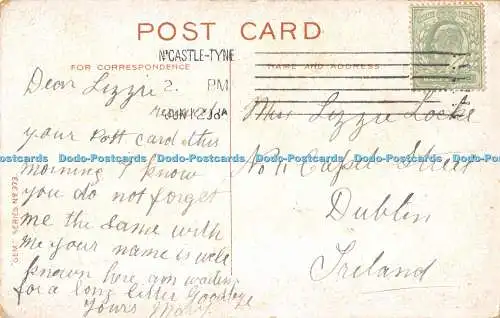 POST CARD
N'CASTLE-TYNE
FOR CORRESPONDENCE
NAME AND ADDRESS
2. PM
JUN 12 08
Dear Lizzie
your post card this
morning I know
you do not forget
me the same with
me your name is well
known here am waiting
for a long litter Goodbye
Yours
Miss Lizzie Locke
No 11 Capel Street
Dublin
Ireland
"GEM" SERIES No 373
Dodo-Postcards Dodo-Postcards Dodo-Postcards Dodo-Postcards Dodo-Postcards